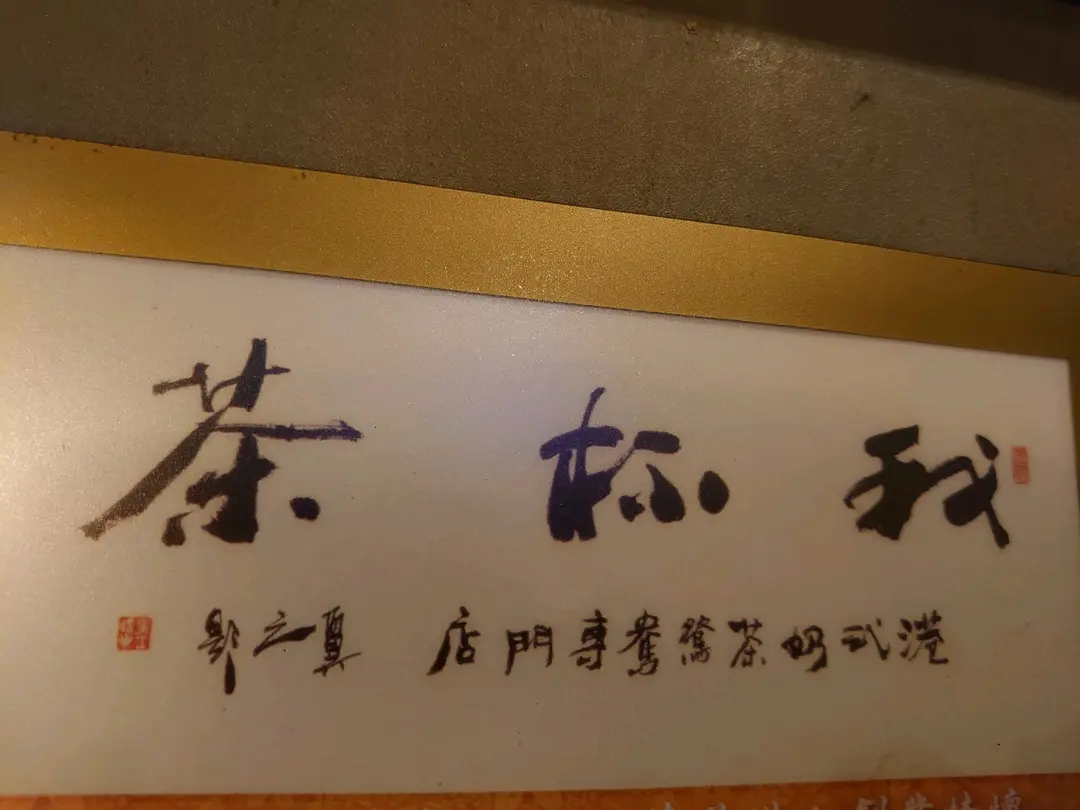 我杯茶
港式奶茶鴛鴦專門店
之題